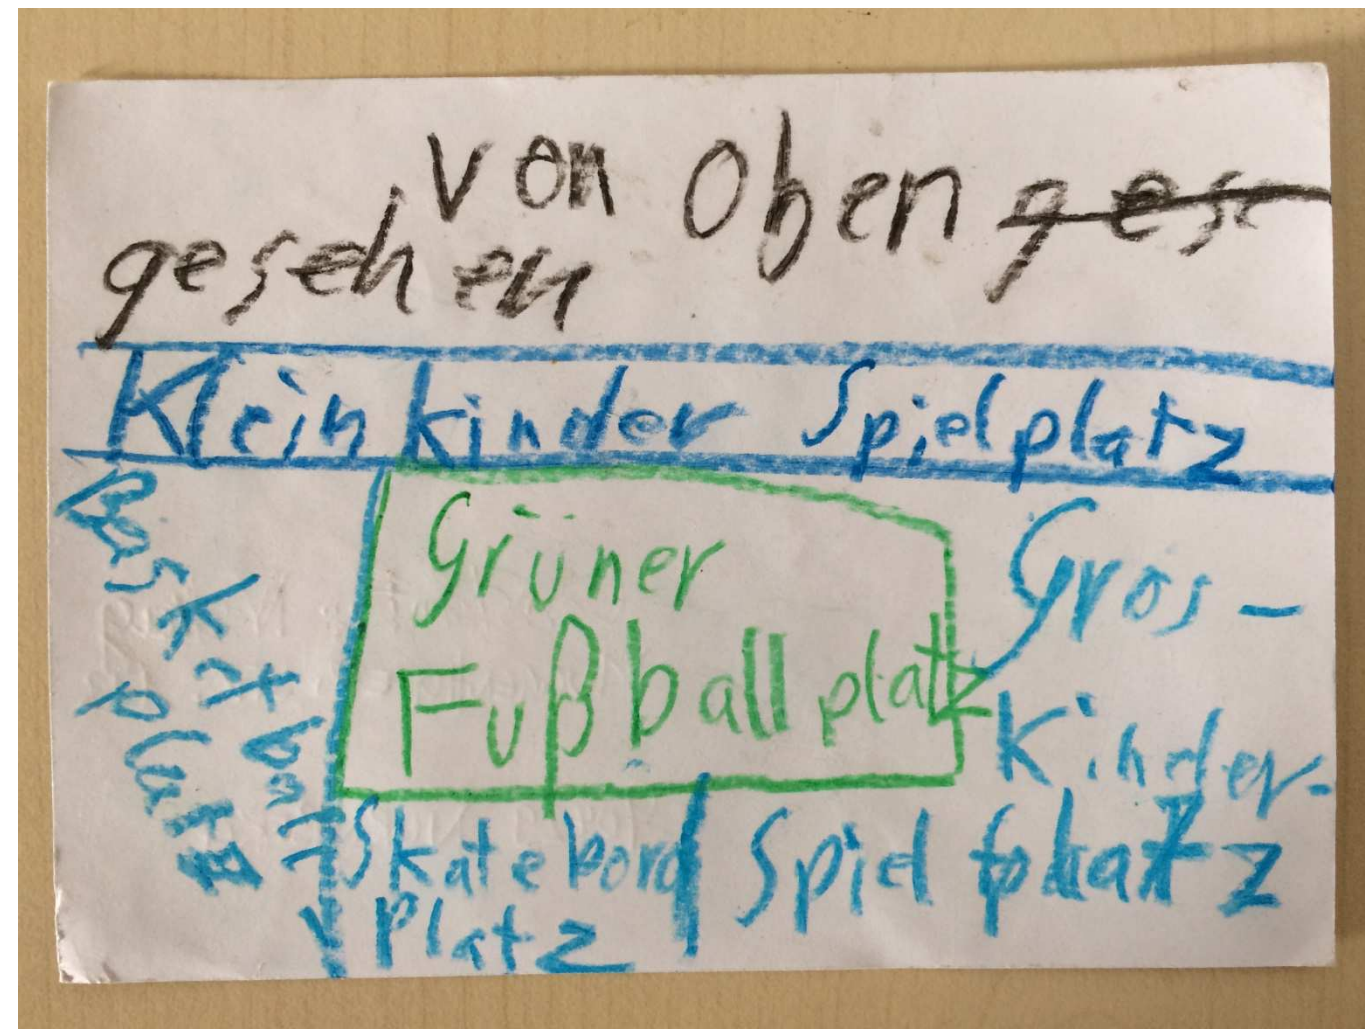 von oben ges
gesehen
Kleinkinder Spielplatz
Basketball
platz
Grüner
Fußballplatz
Gros-
Kinder-
Spielplatz
Skatebord
Platz